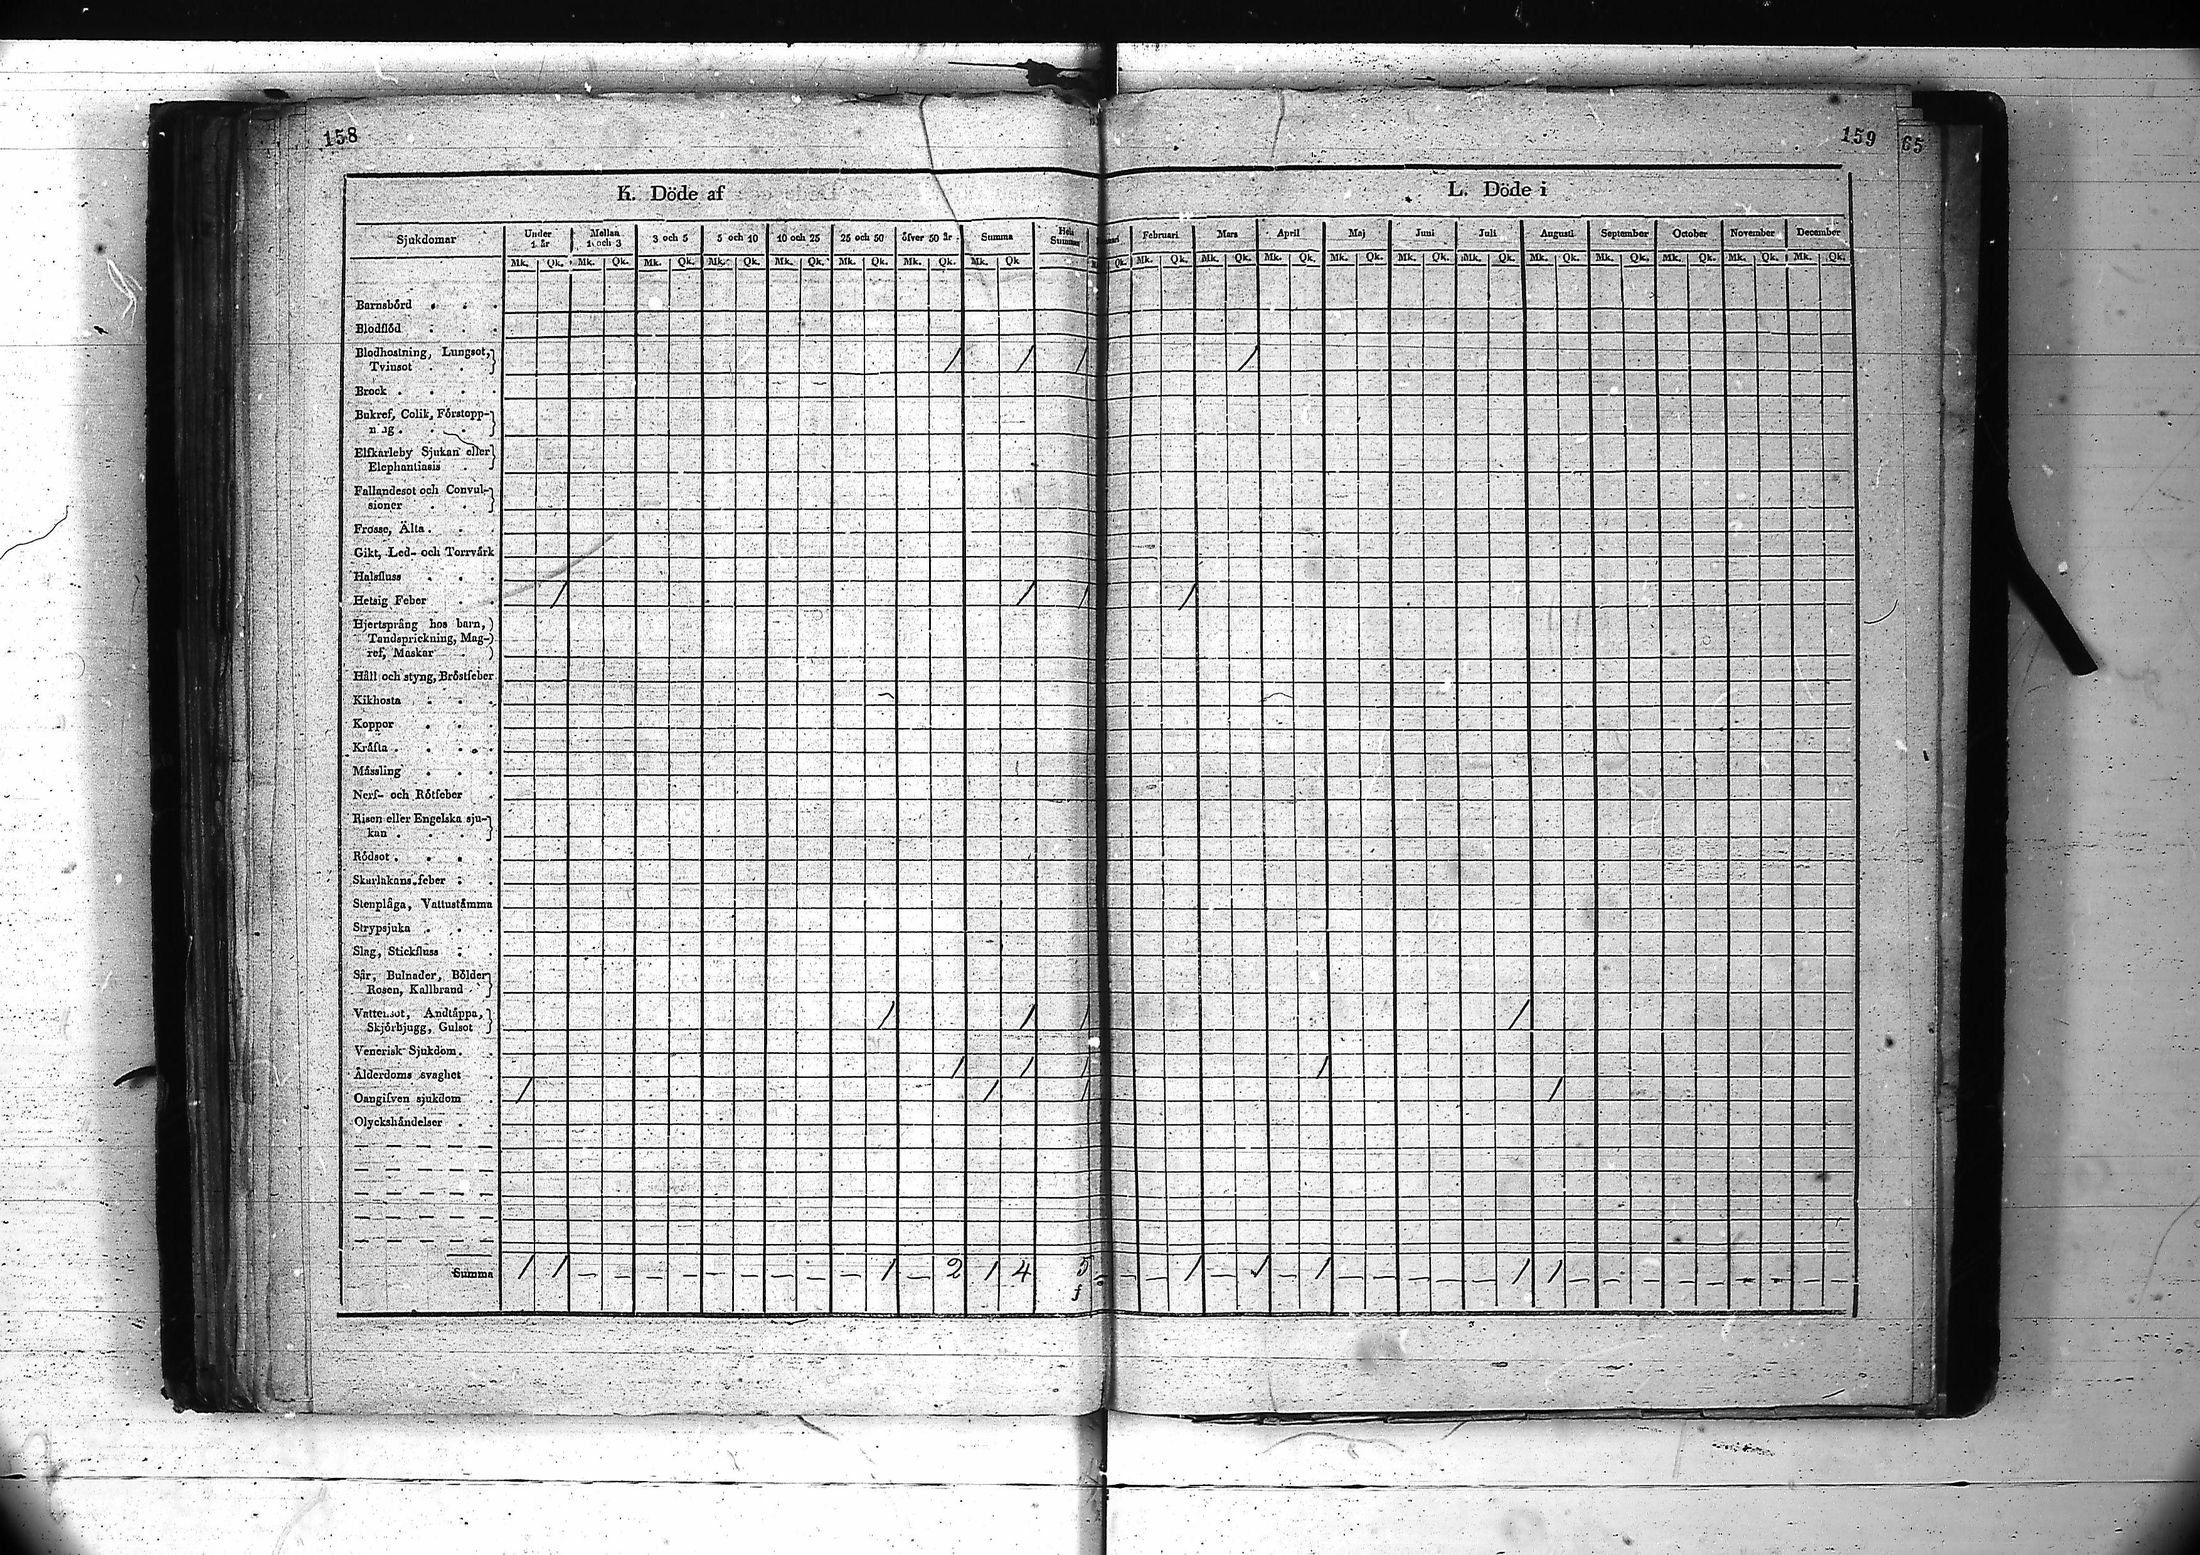 158
159 65
K. Döde af
L. Döde i
Sjukdomar Under 1 år Mellan 1 och 3 3 och 5 5 och 10 10 och 25 25 och 50 öfver 50 år Summa Hela Summan Februari Mars April Maj Juni Juli Augusti September October November December
Mk. Qk. Mk. Qk. Mk. Qk. Mk. Qk. Mk. Qk. Mk. Qk. Mk. Qk. Mk. Qk Qk. Mk. Qk. Mk. Qk. Mk. Qk. Mk. Qk. Mk. Qk. Mk. Qk. Mk. Qk. Mk. Qk. Mk. Qk. Mk. Qk. Mk. Qk.
Barnsbörd . . .
Blodflöd . . .
Blodhostning, Lungsot,
Tvinsot . . 1 1 1 1
Brock . . .
Bukref, Colik, Förstopp-
ning . . .
Elfkarleby Sjukan eller
Elephantiasis .
Fallandesot och Convul-
sioner . .
Frosse, Älta . . .
Gikt, Led- och Torrvärk
Halsfluss . . .
Hetsig Feber . . 1 1 1 1
Hjertsprång hos barn,
Tandsprickning, Mag-
ref, Maskar .
Håll och styng, Bröstfeber
Kikhosta . . .
Koppor . . .
Kräfta . . . .
Mässling . . .
Nerf- och Rötfeber .
Risen eller Engelska sju-
kan . . .
Rödsot . . . .
Skarlakans-feber . .
Stenplåga, Vattustämma
Strypsjuka . . .
Slag, Stickfluss . .
Sår, Bulnader, Bölder
Rosen, Kallbrand .
Vattensot, Andtäppa,
Skjörbjugg, Gulsot 1 1 1 1
Venerisk Sjukdom . .
Ålderdoms svaghet . 1 1 1 1
Oangifven sjukdom . 1 1 1 1
Olyckshändelser . .
Summa 1 1 — — — — — — — — — 1 — 2 1 4 5 — — — 1 — 1 — 1 — — — — — 1 1 — — — — — — — — —